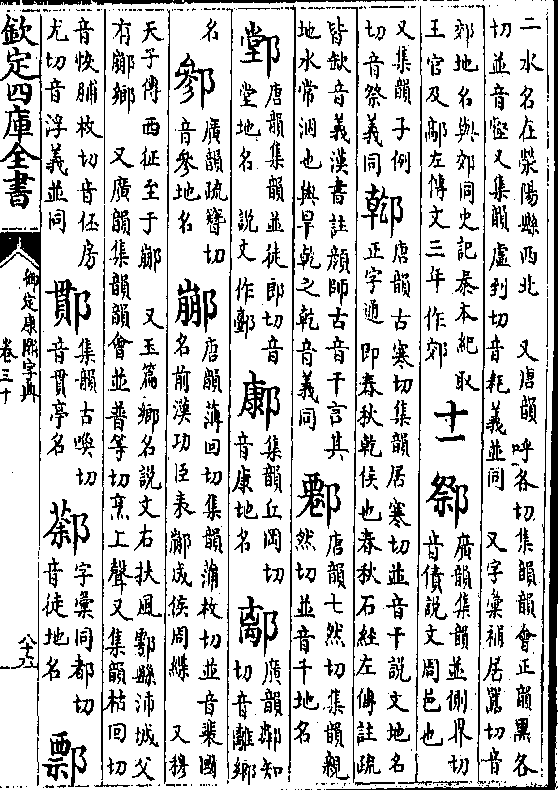 二水名在滎陽縣西北　又唐韻呼各切集韻韻會正韻黑各
切並音壑又集韻虛到切音耗義並同　又字彙補居罵切音
郊地名與郊同史記秦本紀取
王官及鄗左傳文三年作郊　十一　鄒　廣韻集韻並側界切
音債說文周邑也
又集韻子例
切音祭義同　鄿　唐韻古寒切集韻居寒切並音干說文地名
正字通　即春秋乾侯也春秋石經左傳註疏
皆缺音義漢書註顏師古音干言其
地水常涸也與旱乾之乾音義同　鄻　唐韻七然切集韻親
然切並音千地名
鄞　唐韻集韻並徒郎切音
堂地名　說文作鄌　鄺　集韻丘岡切
音康地名　離　廣韻鄰知
切音離鄉
名　鄝　廣韻疏簪切
音參地名　䣙　唐韻薄回切集韻蒲枚切並音裴國
名前漢功臣表䣙成侯周緤　又穆
天子傳西征至于䣙　又玉篇鄉名說文右扶風鄠縣沛城父
有䣙鄉　又廣韻集韻韻會並普等切烹上聲又集韻枯回切
音恢脯枚切音伾房
尤切音浮義並同　䣋　集韻古喚切
音貫亭名　䣝　字彙同都切
音徒地名　鄛
欽定四庫全書
御定康熙字典
卷三十
八十六